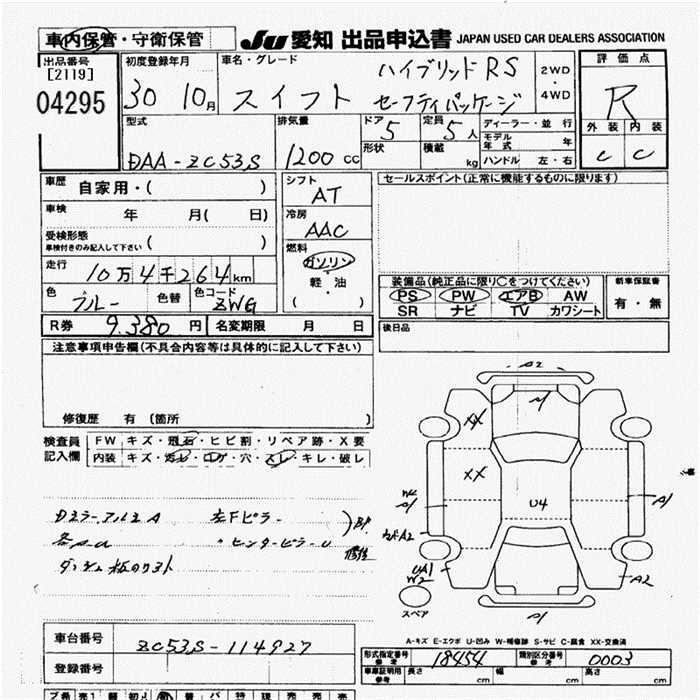 車内保管・守衛保管 JU 愛知 出品申込書 JAPAN USED CAR DEALERS ASSOCIATION
出品番号 [2119] 04295
初度登録年月 30 10月
車名・グレード スイフト ハイブリッドRS セーフティパッケージ
2WD・4WD
評価点 R
外装 内装
C C
型式 DAA-ZC53S
排気量 1200cc
ドア 5 形状
定員 5人 積載 kg
ディーラー・並行
モデル年式 年
ハンドル 左・右
車歴 自家用・( )
車検 年 月( 日)
受検形態 車検付きのみ記入して下さい ( )
走行 10万4千264km
色 ブルー 色替 色コード ZWG
シフト AT
冷房 AAC
燃料 ガソリン・軽・油 ( )
セールスポイント(正常に機能するものに限ります)
装備品(純正品に限り○をつけてください)
PS PW エアB AW
SR ナビ TV カワシート
新車保証書 有・無
R券 9,380円 名変期限 月 日
後日品
注意事項申告欄(不具合内容等は具体的に記入して下さい)
修復歴 有(箇所 )
検査員記入欄 FW キズ・飛石・ヒビ割・リペア跡・X要
内装 キズ・汚レ・コゲ・穴・スレ・キレ・破レ
A2
A1
XX
XX
U4
W2 A1
A1
A2
UA1
W2
A2
A1
スペア
Dミラー、アルミA 左Fピラー
各AU 〃センターピラーU
修正
A-キズ E-エクボ U-凹み W-補修跡 S-サビ C-腐食 XX-交換済
車台番号 ZC53S-114927
登録番号
形式指定番号 参考 18454 類別区分番号 参考 0003
車庫証明用 参考 長さ cm 幅 cm 高さ cm